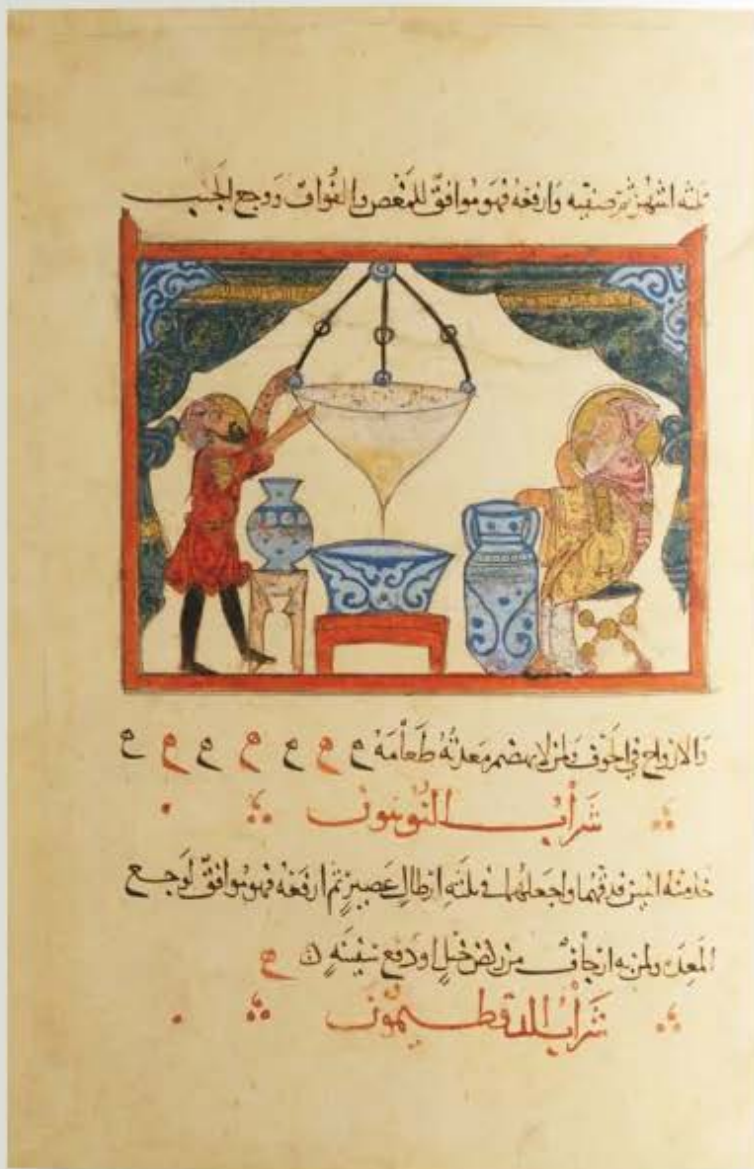 ثلثه اشهر ثم صفيه وارفعه فهو موافق للمغص والفواق ووجع الجنب
والارواح في الجوف ولمن لا يهضم معدته طعامه و و و و و و و
شراب
خذ منه اثنين فدقهما واجعلهما في ثلثه ارطال عصير ثم ارفعه فهو موافق لوجع
المعده ولمن به ارجاف من ركض خيل او دفع سفينه
شراب